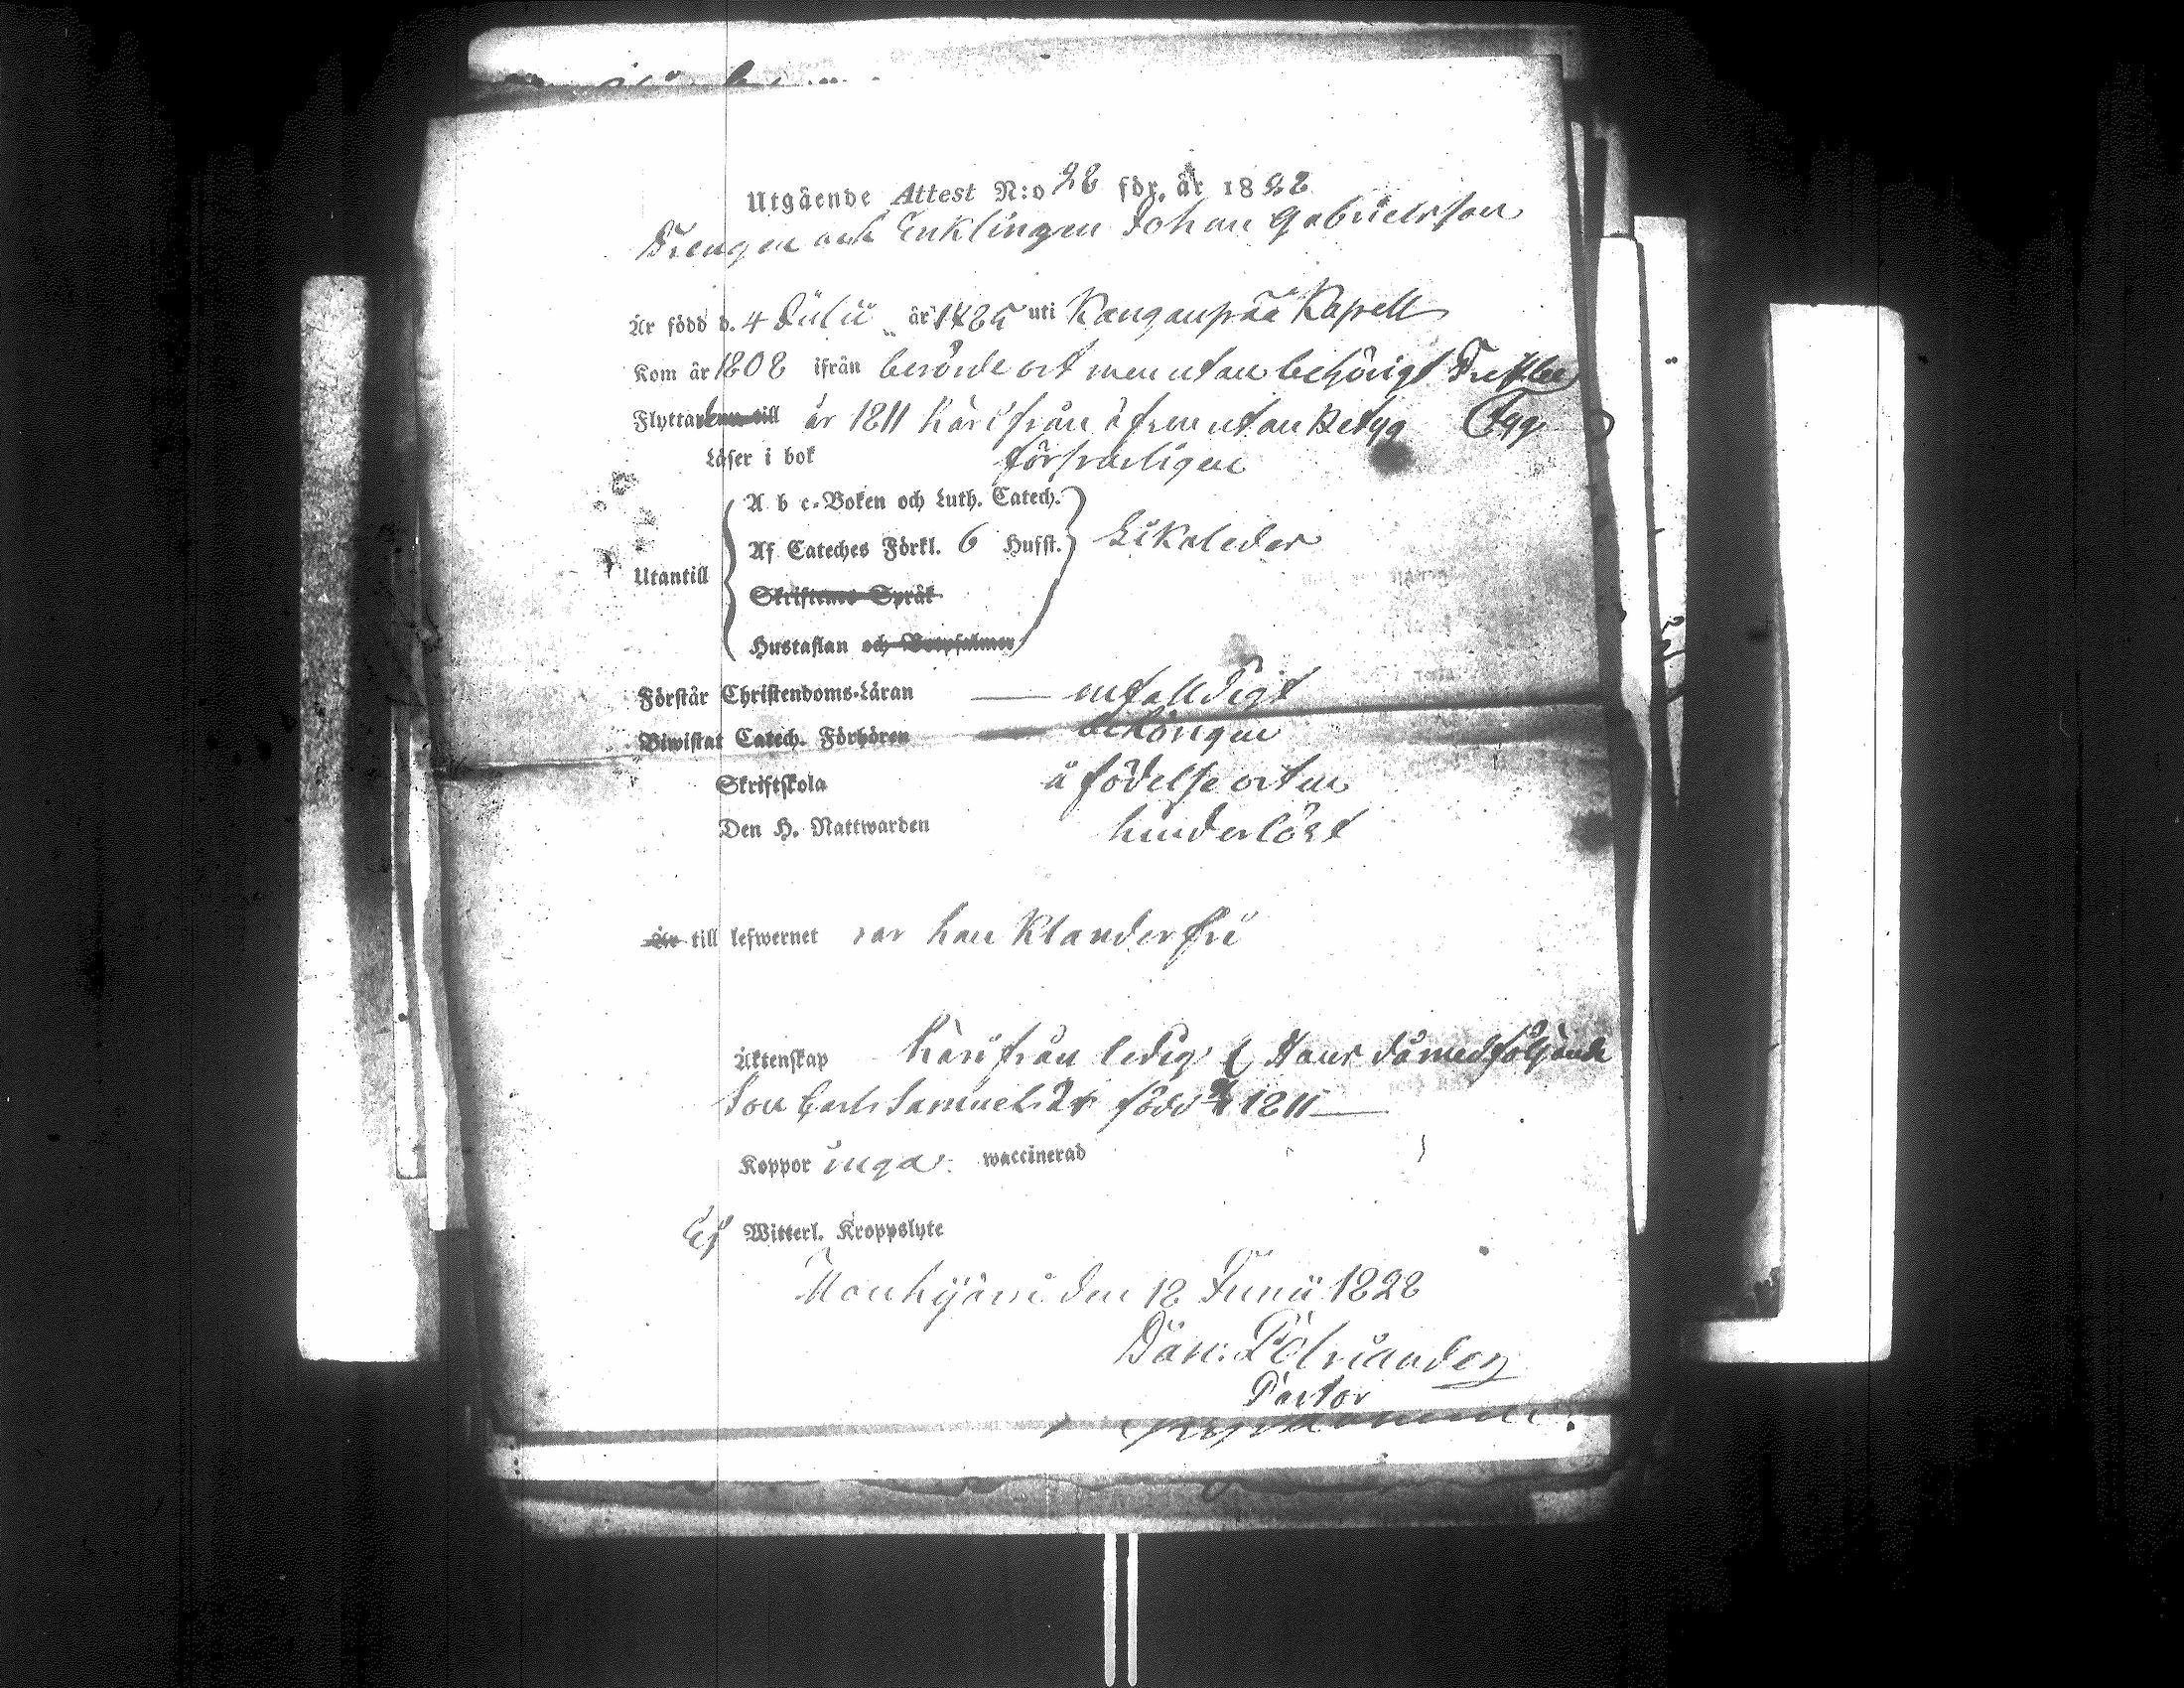 Utgående Attest N:o 28 för år 1828
Drengen och Enklingen Johan Gabrielsson
Är född d. 4 Julii år 1785 uti Kangaspää Kapell
Kom år 1808 ifrån berörde ort men utan behörigt
Flyttar år 1811 härifrån äfven utan Betyg
Läser i bok försvarligen
A b c-Boken och Luth. Catech.
Utantill Af Cateches Förkl. 6 Hufst. Likaledes
Skriftenes Språk
Hustaflan och Botpsalmer
Förstår Christendoms-Läran enfalldigt
Biwistat Catech. Förhören behörigen
Skriftskola å födelse orten
Den H. Nattwarden hinderlöst
Är till lefwernet var han Klanderfri
Äktenskap härifrån ledig Hans då medföljande
Son Carl Samuel är född 1811
Koppor inga waccinerad
Ej Witterl. Kroppslyte
Mouhijärvi den 18 Junii 1828
Dan: Polviander
Pastor